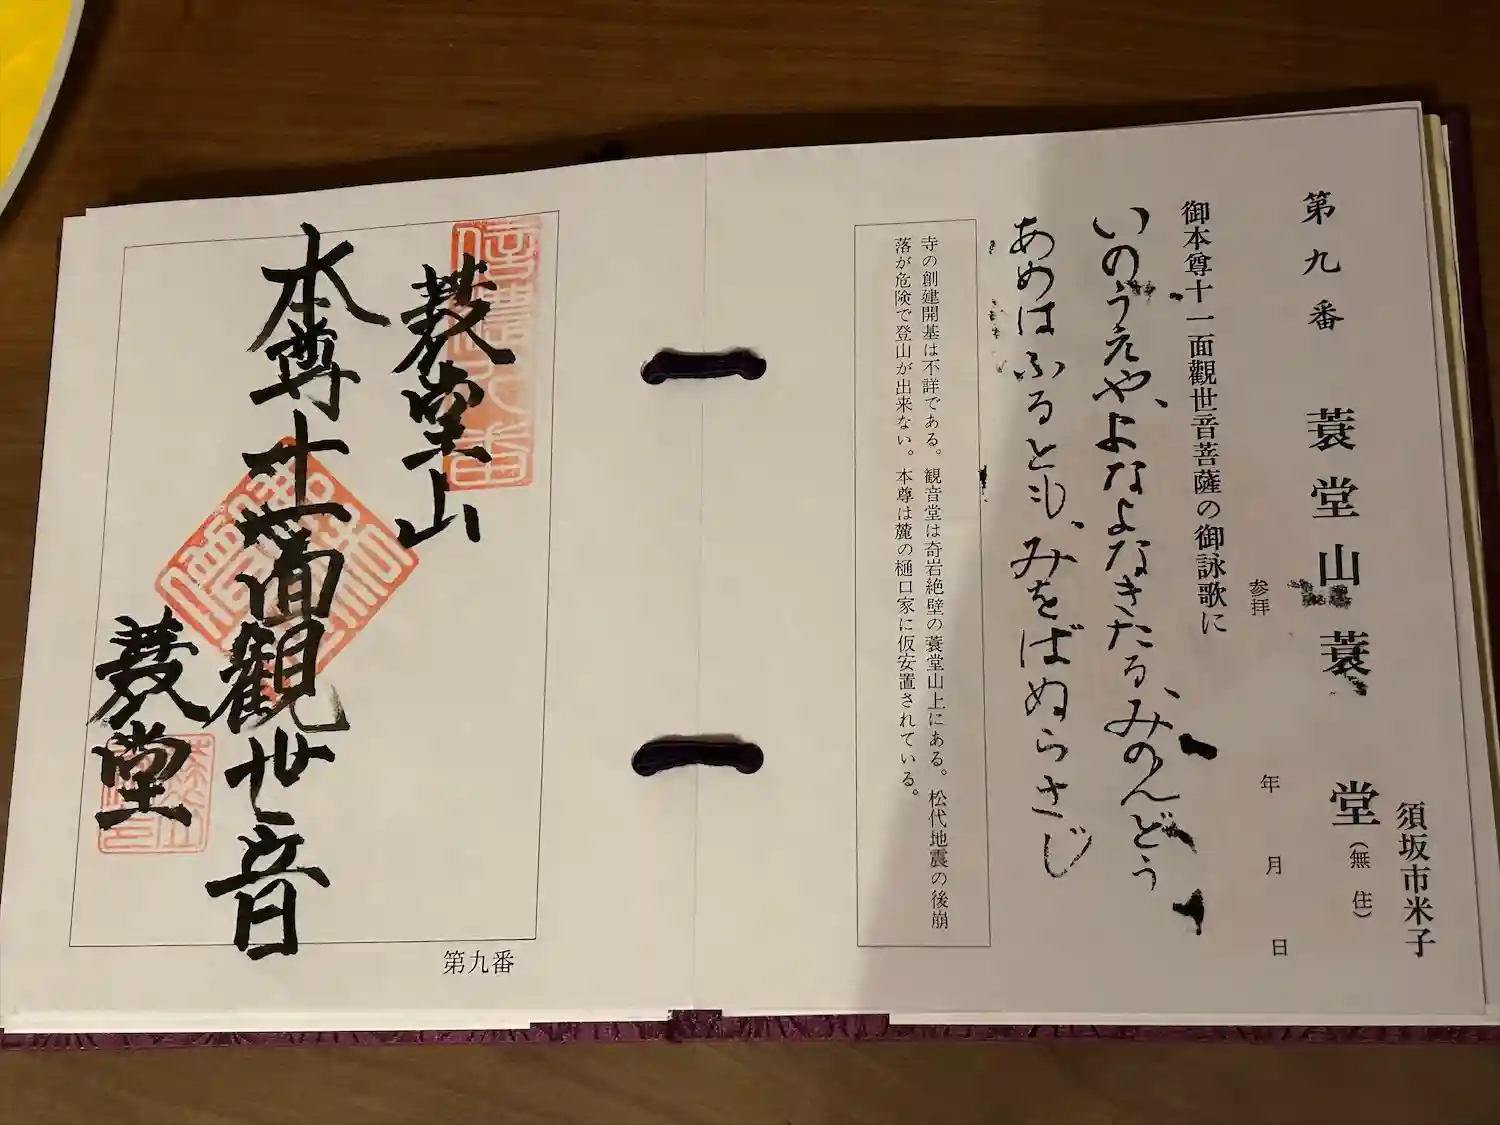 須坂市米子
第九番 蓑堂山蓑堂(無住)
参拝 年 月 日
御本尊十一面觀世音菩薩の御詠歌に
いのうえや、よなよなきたる、みのんどう
あめはふるとも、みをばぬらさじ
寺の創建開基は不詳である。観音堂は奇岩絶壁の蓑堂山上にある。松代地震の後崩
落が危険で登山が出来ない。本尊は麓の樋口家に仮安置されている。
蓑堂山
本尊十一面観世音
蓑堂
第九番